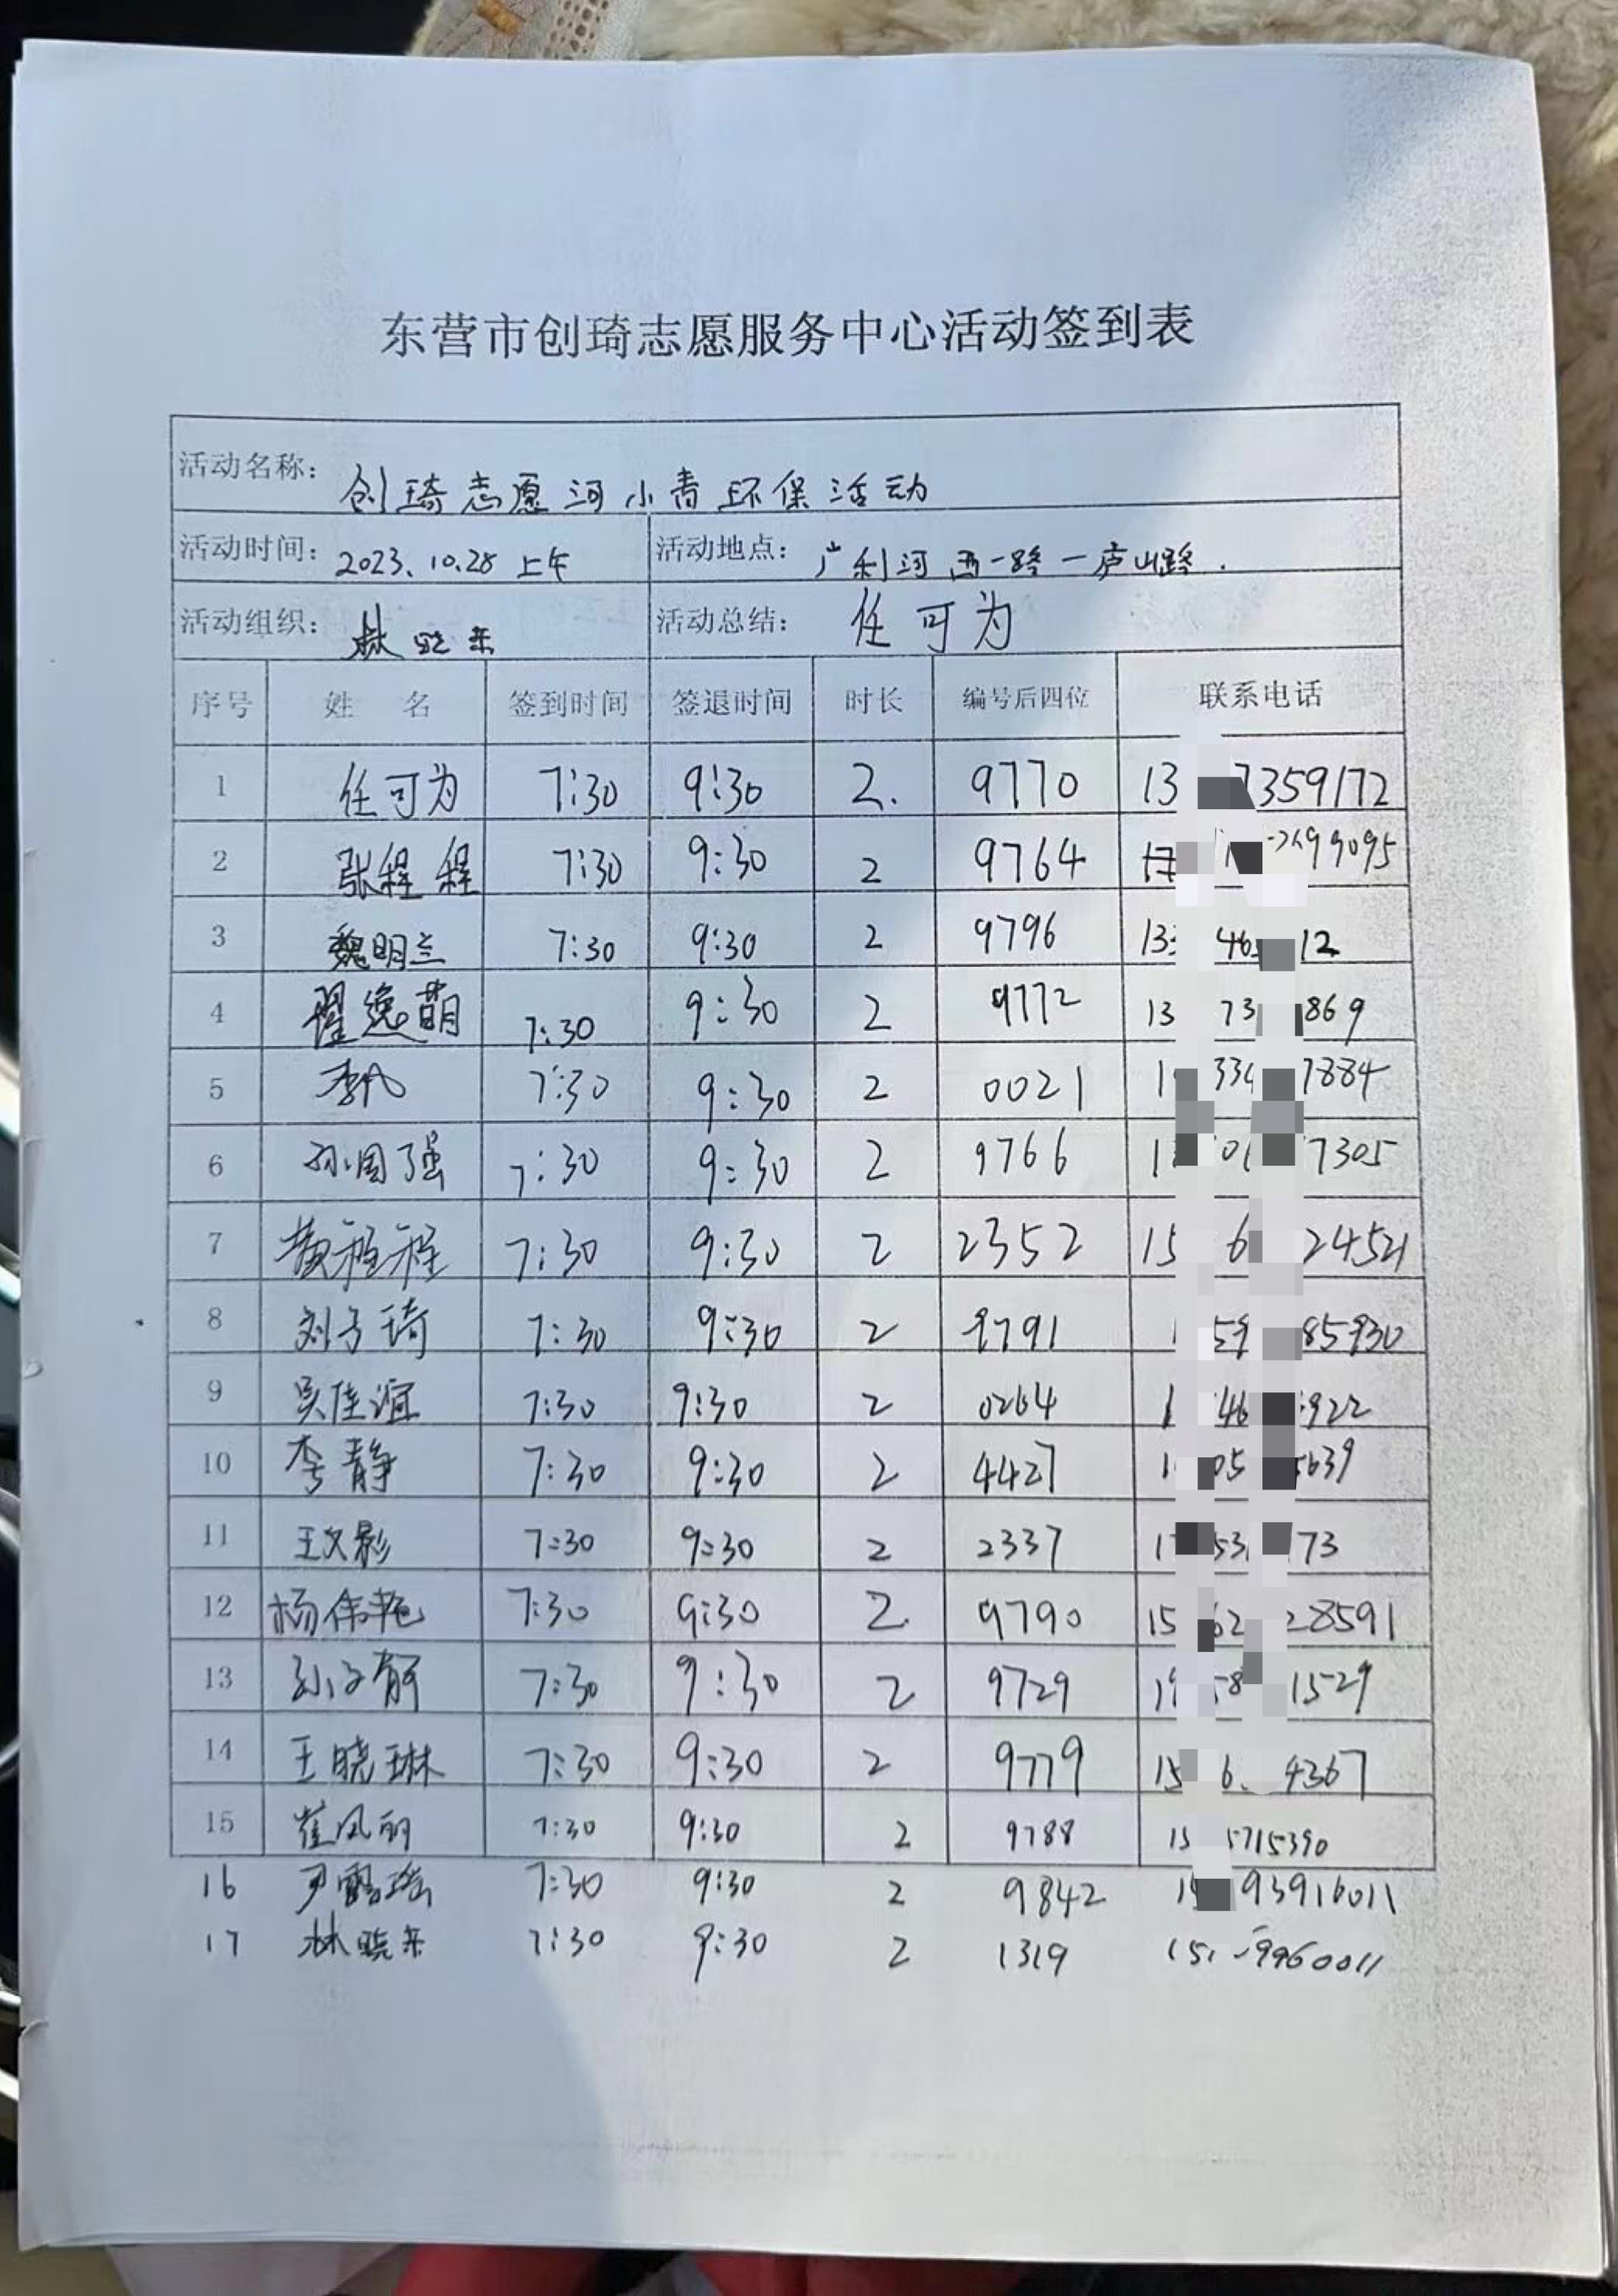 东营市创琦志愿服务中心活动签到表
活动名称： 创琦志愿河小青环保活动
活动时间： 2023.10.28 上午 活动地点： 广利河西一路一庐山路.
活动组织： 林晓东 活动总结： 任可为
序号 姓 名 签到时间 签退时间 时长 编号后四位 联系电话
1 任可为 7:30 9:30 2. 9770 13 7359172
2 张程程 7:30 9:30 2 9764 99095
3 魏明兰 7:30 9:30 2 9796 13 46 12
4 翟逸萌 7:30 9:30 2 9772 13 73 869
5 7:30 9:30 2 0021 1 334 7884
6 孙国强 7:30 9:30 2 9766 1 01 7305
7 黄程程 7:30 9:30 2 2352 15 6 24521
8 刘子琦 7:30 9:30 2 9791 1 59 85930
9 吴佳谊 7:30 9:30 2 0264 1 46 922
10 李静 7:30 9:30 2 4427 1 05 5639
11 王文影 7:30 9:30 2 2337 1 53 73
12 杨伟艳 7:30 9:30 2. 9790 15 62 28591
13 孙子舒 7:30 9:30 2 9729 19 58 1529
14 王晓琳 7:30 9:30 2 9779 15 6 4367
15 崔凤丽 7:30 9:30 2 9788 15 5715390
16 尹露瑶 7:30 9:30 2 9842 1 93916011
17 林晓东 7:30 9:30 2 1319 15 9960011